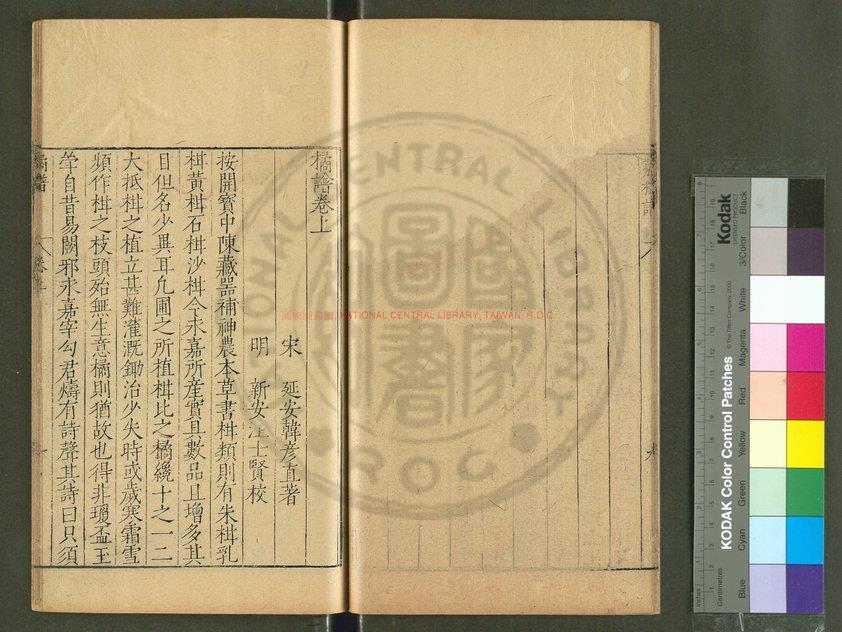 橘譜卷上
宋 延安韓彦直著
明 新安汪士賢校
按開寳中陳藏噐補神農本草書柑類則有朱柑乳
柑黄柑石柑沙柑今永嘉所産實具數品且增多其
目但名少異耳凢圃之所植柑比之橘纔十之一二
大抵柑之植立甚難灌溉鋤治少失時或歲寒霜雪
頻作柑之枝頭殆無生意橘則猶故也得非瓊盃玉
斝自昔易闕邪永嘉宰勾君燽有詩聲其詩曰只須
橘譜
國家圖書館, NATIONAL CENTRAL LIBRARY, TAIWAN, R.O.C
NATIONAL CENTRAL LIBRARY
R.O.C
國家圖書館
Kodak
LICENSED PRODUCT
KODAK Color Control Patches
© The Tiffen Company, 2000
Inches
Centimetres
Blue
Cyan
Green
Yellow
Red
Magenta
White
3/Color
Black